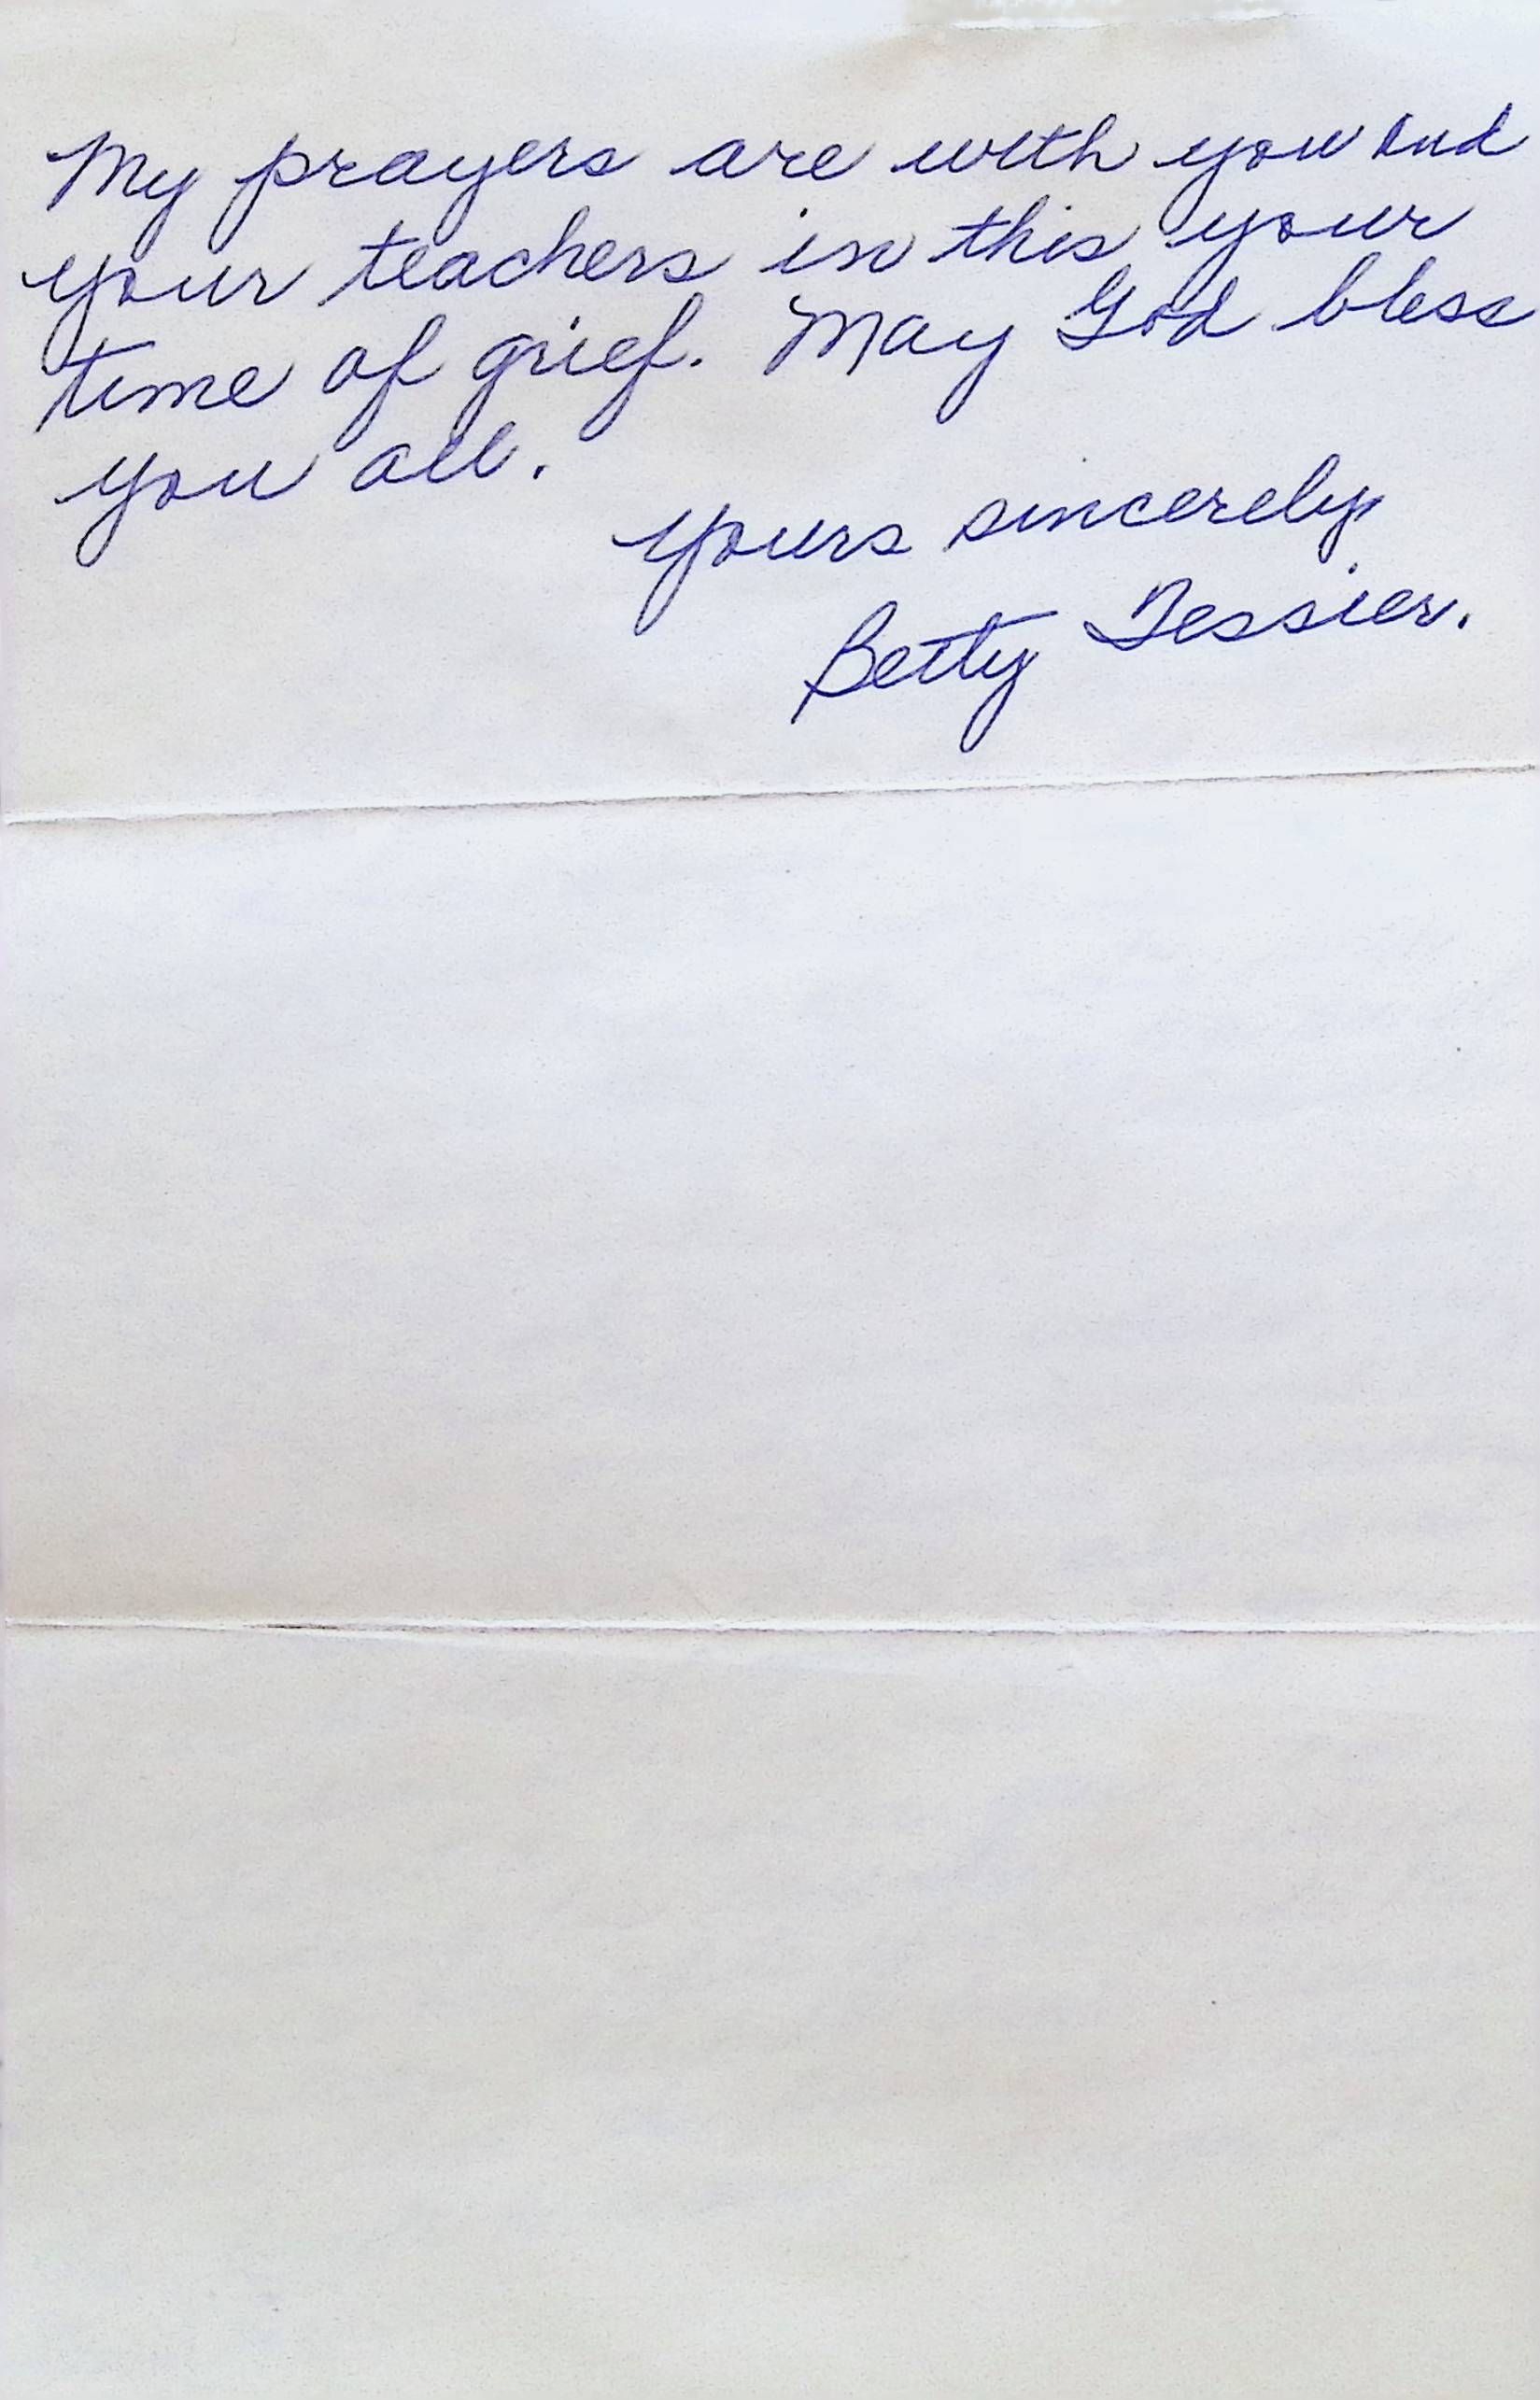 My prayers are with you and
your teachers in this your
time of grief. May God bless
you all.
Yours sincerely,
Betty Tessier.